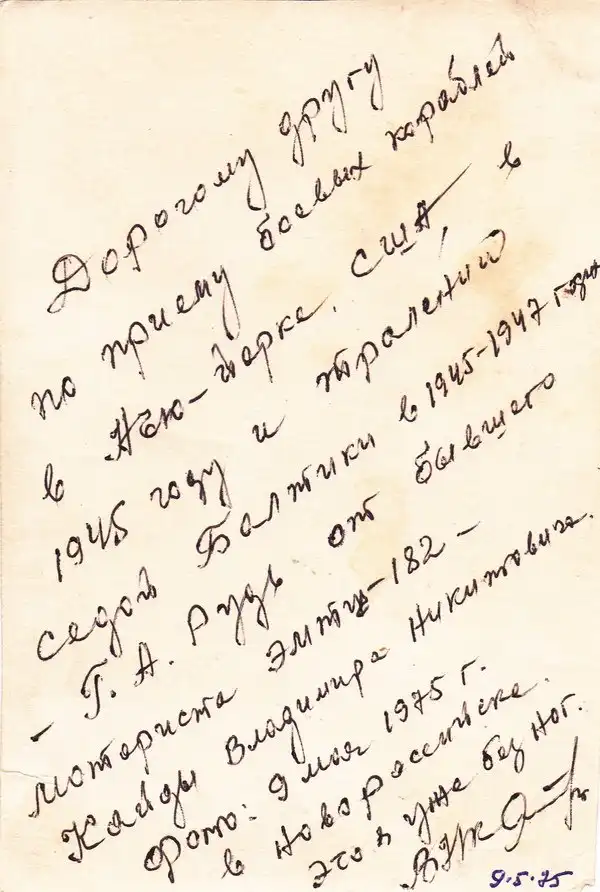 Дорогому другу
по приему боевых кораблей
в Нью-Йорке, США, в
1945 году и тралений
седой Балтики в 1945-1947 годы
- Г. А. Рудь от бывшего
моториста ЭМТЩ-182 -
Кайды Владимира Никитовича.
Фото: 9 мая 1975 г.
в Новороссийске.
Это я уже без ног.
9.5.75